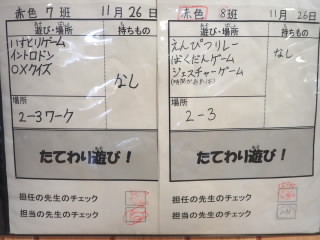 赤色 7班 11月26日
遊び・場所 持ちもの
いすとりゲーム
イントロドン
○×クイズ
なし
場所
2-3ワーク
たてわり遊び！
担任の先生のチェック
担当の先生のチェック
赤色 8班 11月26日
遊び・場所 持ちもの
えんぴつリレー
ばくだんゲーム
ジェスチャーゲーム
(時間があれば)
なし
場所
2-3
たてわり遊び！
担任の先生のチェック
担当の先生のチェック